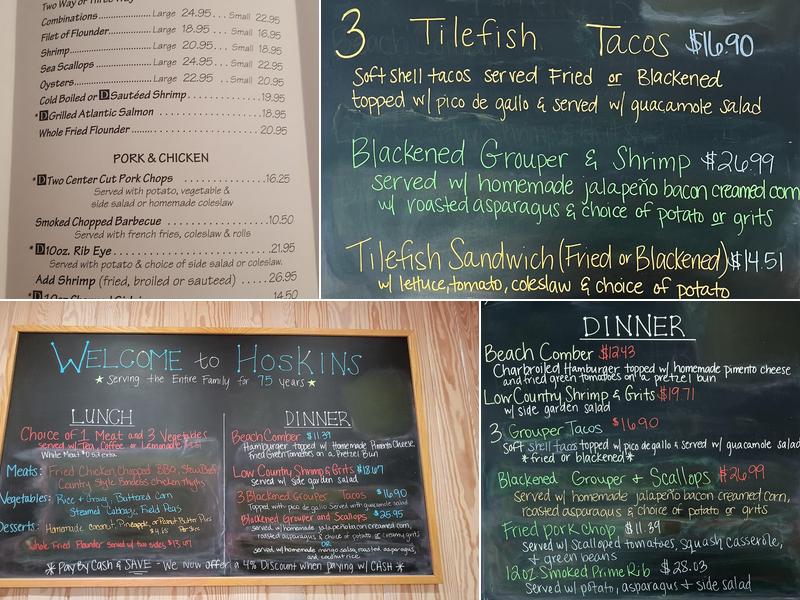 Two Way or Three Way
Combinations..........Large 24.95...Small 22.95
Filet of Flounder..........Large 18.95...Small 16.95
Shrimp..........Large 20.95...Small 18.95
Sea Scallops..........Large 24.95...Small 22.95
Oysters..........Large 22.95...Small 20.95
Cold Boiled or D Sautéed Shrimp..........19.95
*D Grilled Atlantic Salmon..........18.95
Whole Fried Flounder..........20.95
PORK & CHICKEN
*D Two Center Cut Pork Chops..........16.25
Served with potato, vegetable &
side salad or homemade coleslaw
Smoked Chopped Barbecue..........10.50
Served with french fries, coleslaw & rolls
*D 10oz. Rib Eye..........21.95
Served with potato & choice of side salad or coleslaw.
Add Shrimp (fried, broiled or sauteed)..........26.95
14.50
3 Tilefish Tacos $16.90
Soft shell tacos served Fried or Blackened
topped w/ pico de gallo & served w/ guacamole salad
Blackened Grouper & Shrimp $26.99
served w/ homemade jalapeño bacon creamed corn
w/ roasted asparagus & choice of potato or grits
Tilefish Sandwich (Fried or Blackened) $14.51
w/ lettuce, tomato, coleslaw & choice of potato
WELCOME to HOSKINS
★ Serving the Entire Family for 75 years ★
LUNCH
Choice of 1 Meat and 3 Vegetables
served w/ Tea, Coffee or Lemonade
Meats: Fried Chicken, Chopped BBQ, Stew Beef,
Country Style Boneless chicken thighs
Vegetables: Rice & Gravy, Buttered Corn
Steamed Cabbage, Field Peas
Desserts: Homemade Coconut, Pineapple, or Peanut Butter Pies
Whole Fried Flounder served w/ two sides, $13.67
DINNER
Beach Comber $11.39
Hamburger topped w/ Homemade Pimento Cheese,
fried Green Tomatoes on a Pretzel Bun
Low Country Shrimp & Grits $18.67
served w/ side garden salad
3 Blackened Grouper Tacos $16.90
Topped with pico de gallo served with guacamole salad
Blackened Grouper and Scallops $25.95
served w/ homemade jalapeño bacon creamed corn,
roasted asparagus & choice of potato or creamy grits
OR
served w/ homemade mango salsa, roasted asparagus,
and coconut rice
* Pay By Cash & SAVE - We now offer a 4% Discount when paying w/ CASH *
DINNER
Beach Comber $12.43
Charbroiled Hamburger topped w/ homemade pimento cheese
and fried green tomatoes on a pretzel bun
Low Country Shrimp & Grits $19.71
w/ side garden salad
3 Grouper Tacos $16.90
soft shell tacos topped w/ pico de gallo & served w/ guacamole salad
*fried or blackened*
Blackened Grouper & Scallops $26.99
served w/ homemade jalapeño bacon creamed corn,
roasted asparagus & choice of potato or grits
Fried Pork Chop $11.39
served w/ scalloped tomatoes, squash casserole,
& green beans
12oz Smoked Prime Rib $28.03
served w/ potato, asparagus & side salad